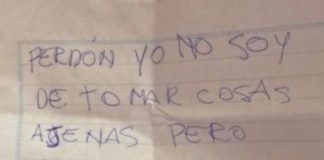 PERDÓN YO NO SOY
DE TOMAR COSAS
AJENAS PERO